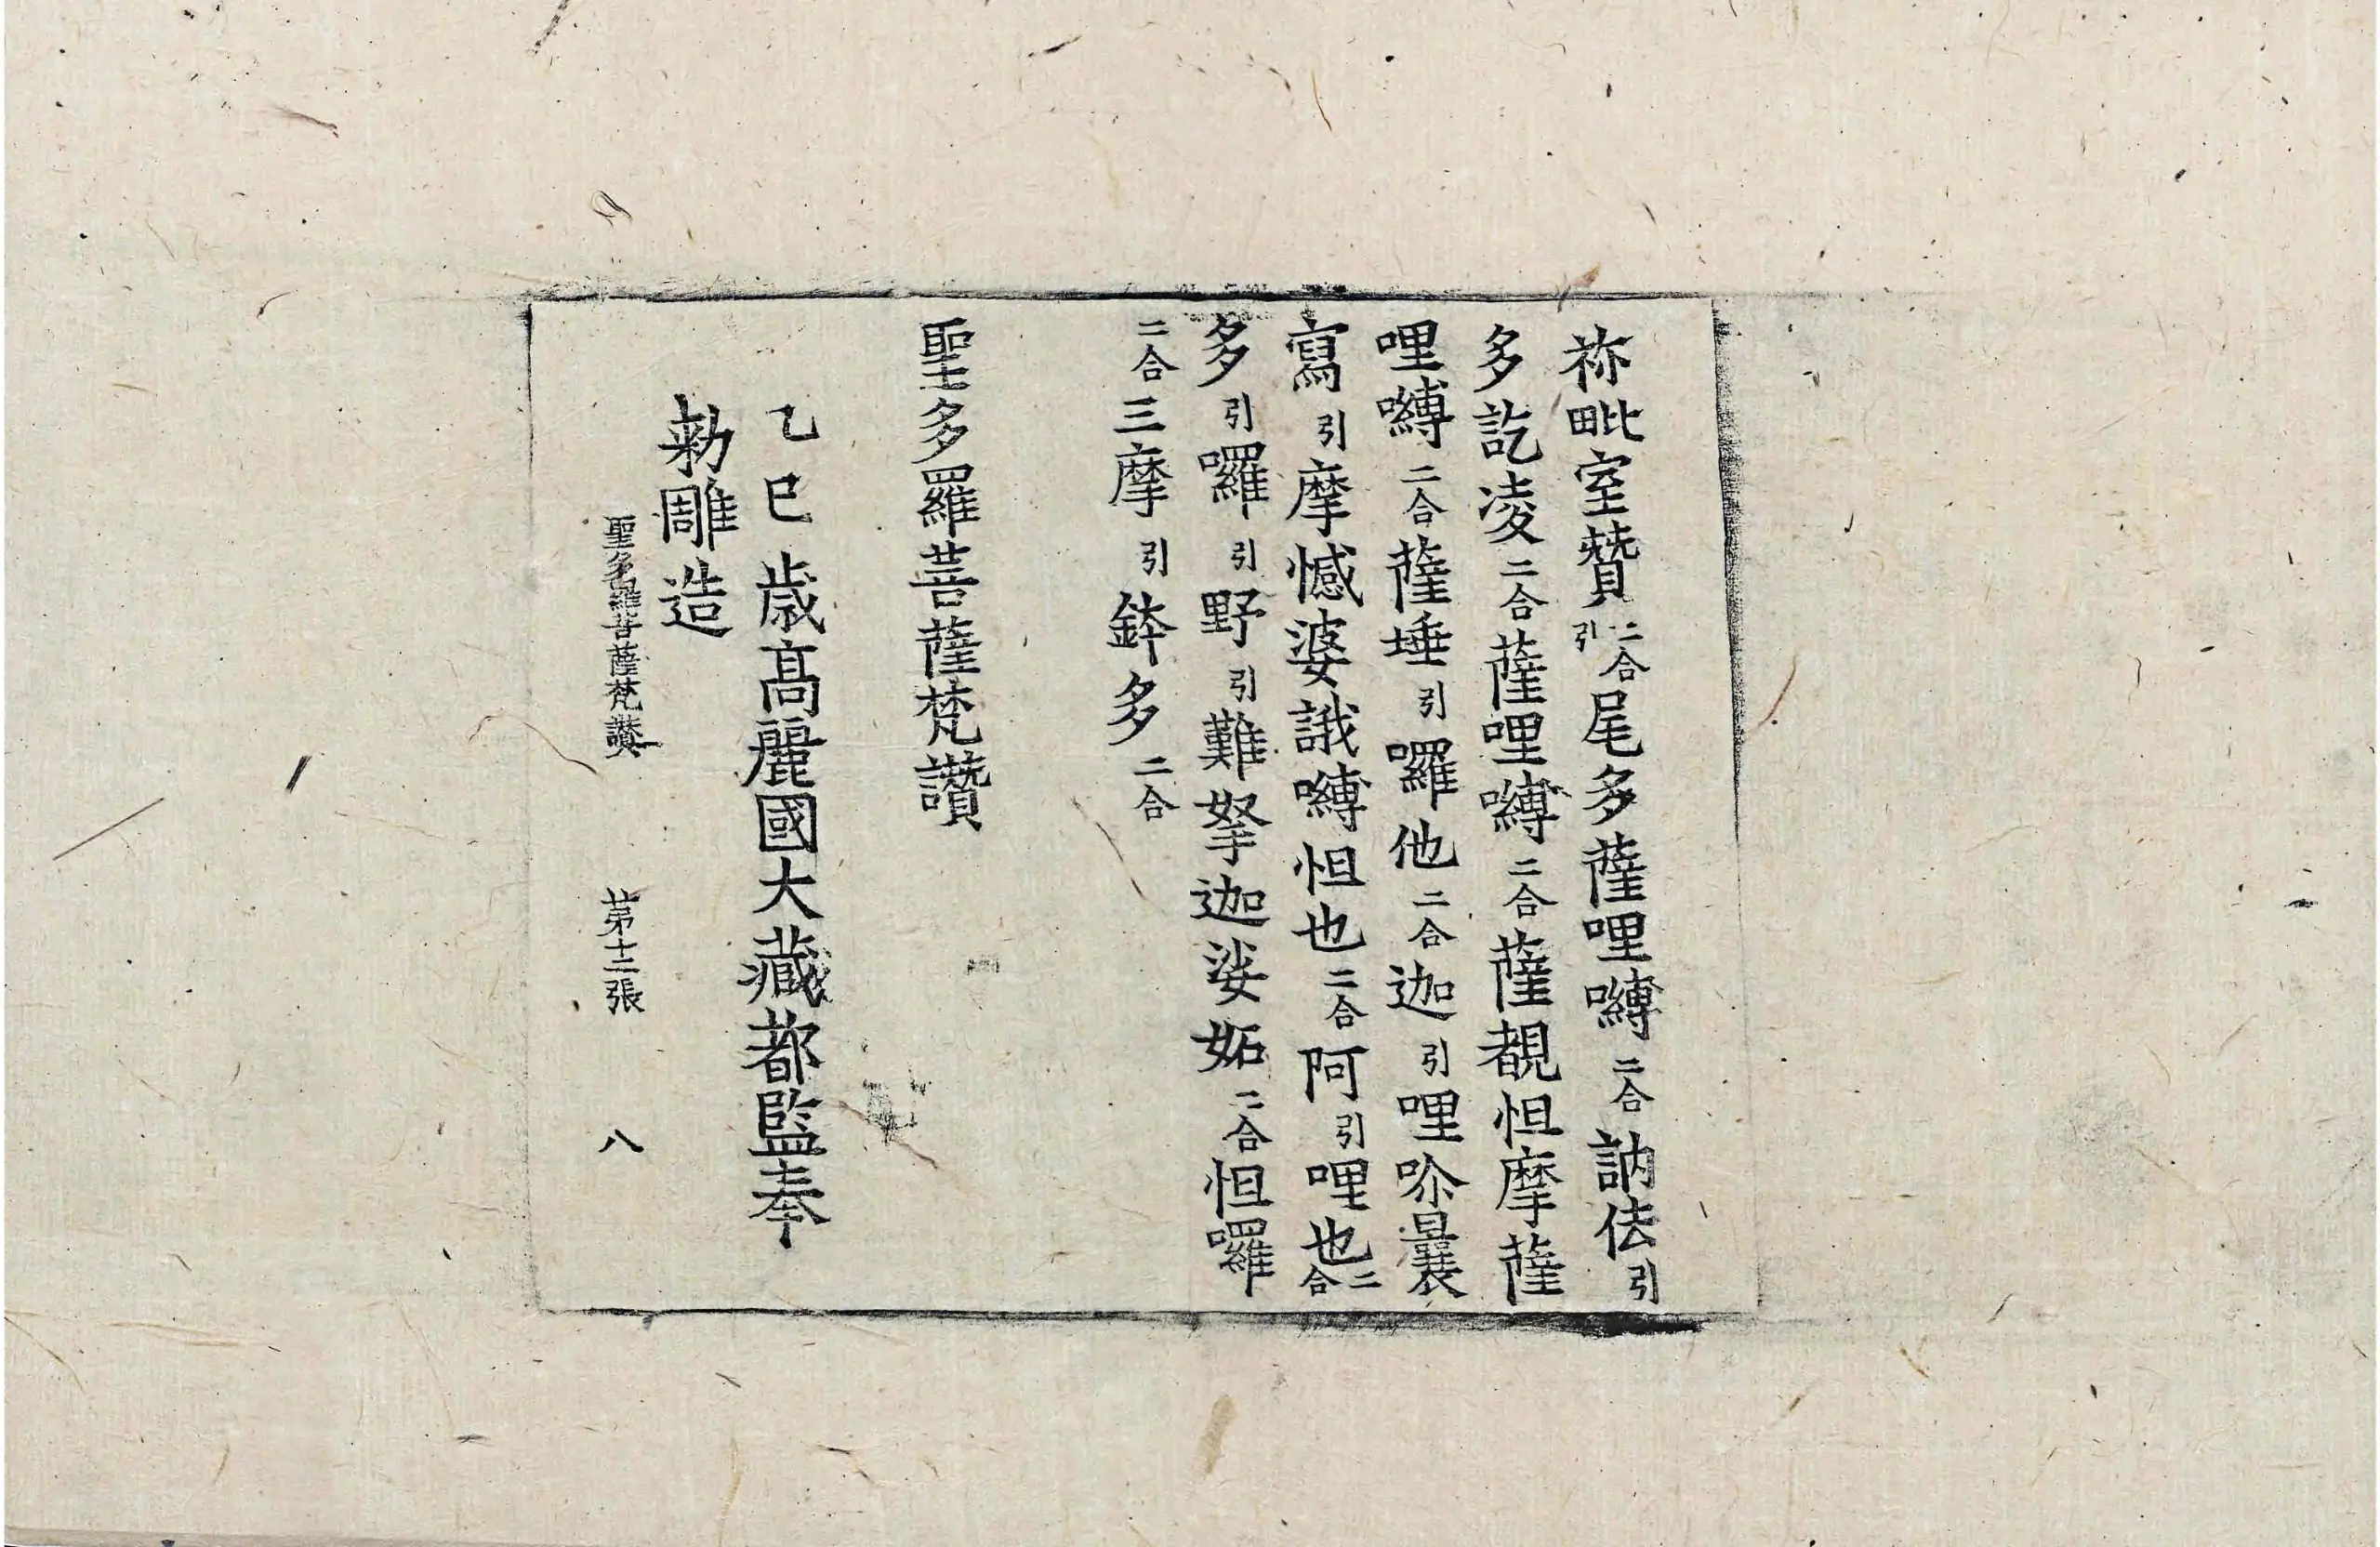 祢毗室贊二合引尾多薩哩嚩二合訥佉引
多訖凌二合薩哩嚩二合薩覩怛摩薩
哩嚩二合薩埵引囉他二合迦引哩吩曩
寫引摩憾婆誐嚩怛也二合阿引哩也二合
多引囉引野引難拏迦娑妬二合怛囉
二合三摩引鉢多二合
聖多羅菩薩梵讚
乙巳歲高麗國大藏都監奉
勅雕造
聖多羅菩薩梵讚 第十二張 八